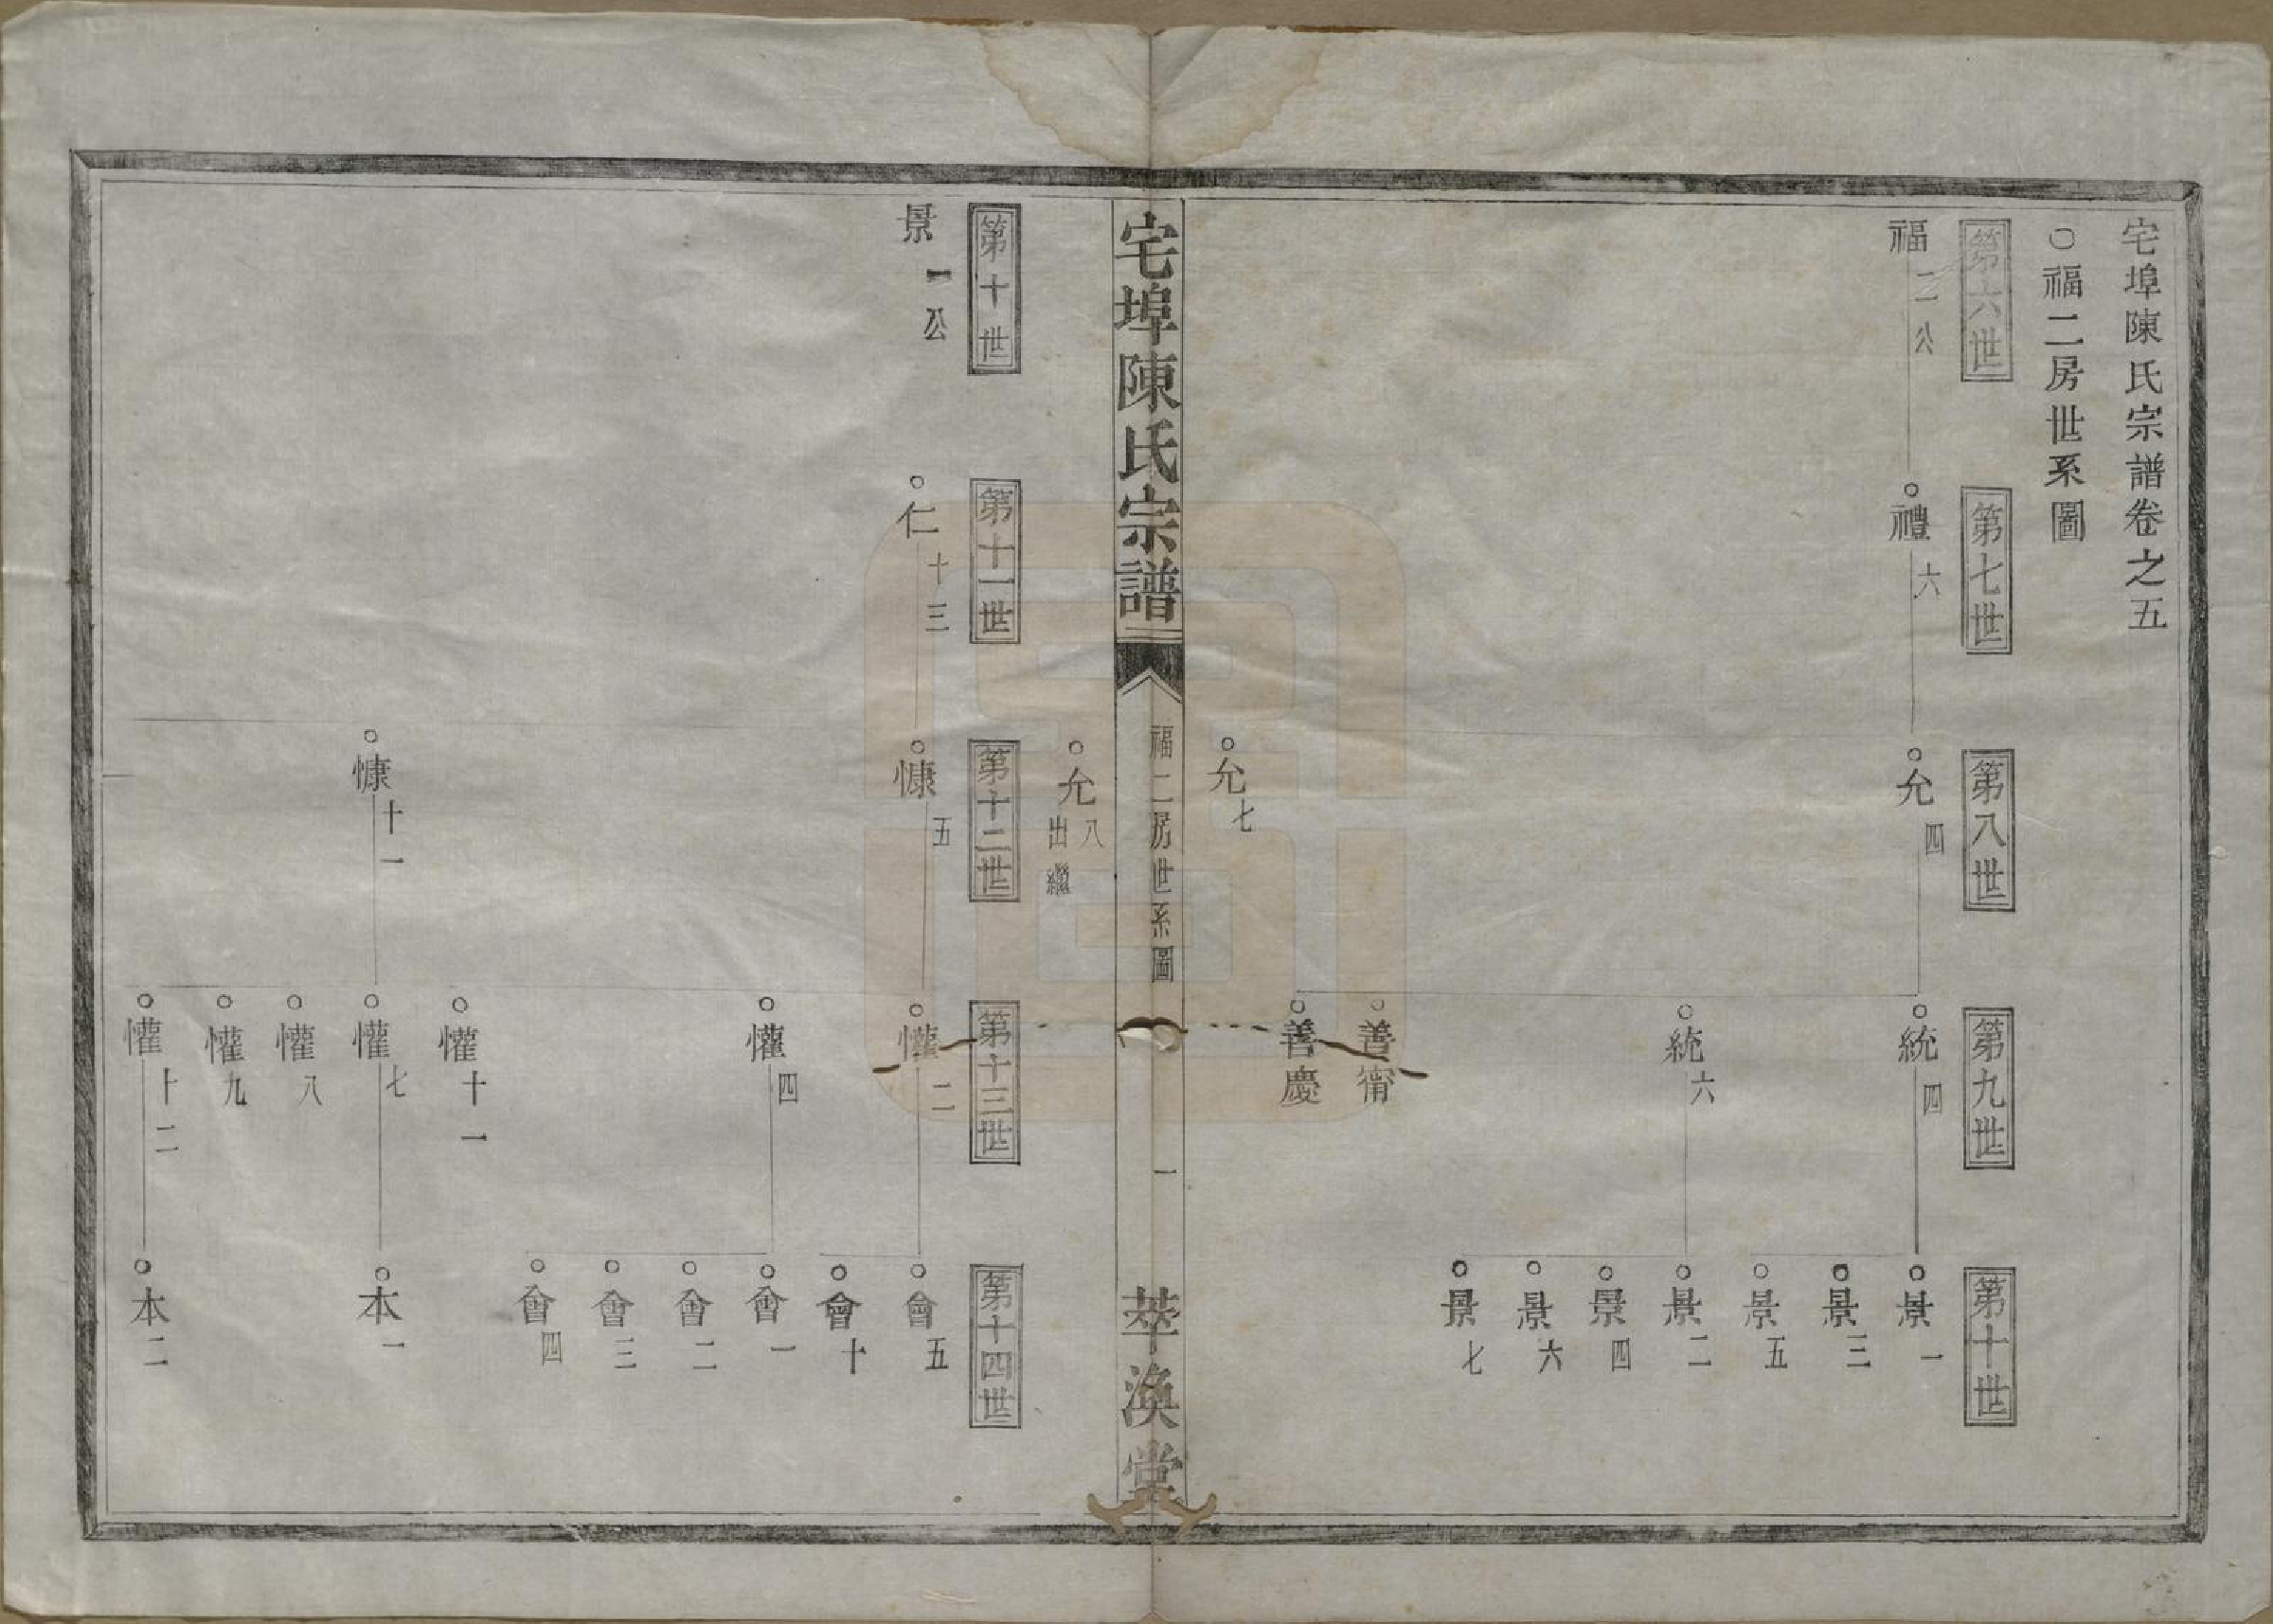 宅埠陳氏宗譜卷之五
○福二房世系圖
第六世
福二公
第七世
禮六
第八世
允四
允七
允八出繼
第九世
統四
統六
善甯
善慶
第十世
景一
景三
景五
景二
景四
景六
景七
宅埠陳氏宗譜
福二房世系圖
一
萃渙堂
第十世
景一公
第十一世
仁十三
第十二世
慷五
慷十一
第十三世
懽二
懽四
懽十一
懽七
懽八
懽九
懽十二
第十四世
會五
會十
會一
會二
會三
會四
本一
本二